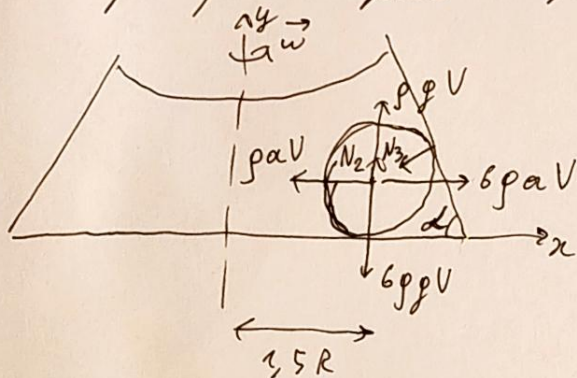 y
ω
ρgV
ρaV
N₂
N₃
6ρaV
α
x
6ρgV
1,5R